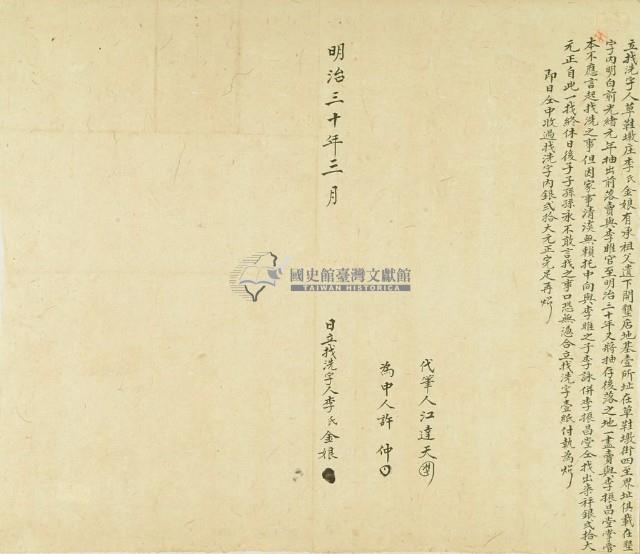 立找洗字人草鞋墩庄李氏金娘有承祖父遺下開墾店地基壹所址在草鞋墩街四至界址俱載在墾
字內明白前光緒元年抽出前落賣與李雖官至明治三十年又將抽存後落之地一盡賣與李振昌堂掌管
本不應言起找洗之事但因家事清淡無賴托中向與李雖之子李詠併李振昌堂仝找出来秤銀弍拾大
元正自此一找終休日後子子孫孫永不敢言找之事口恐無憑合立找洗字壹紙付執為炤
即日仝中收過找洗字內銀弍拾大元正完足再炤
代筆人江達天
為中人許 仲
明治三十年三月
日立找洗字人李氏金娘
國史館臺灣文獻館
TAIWAN HISTORICA